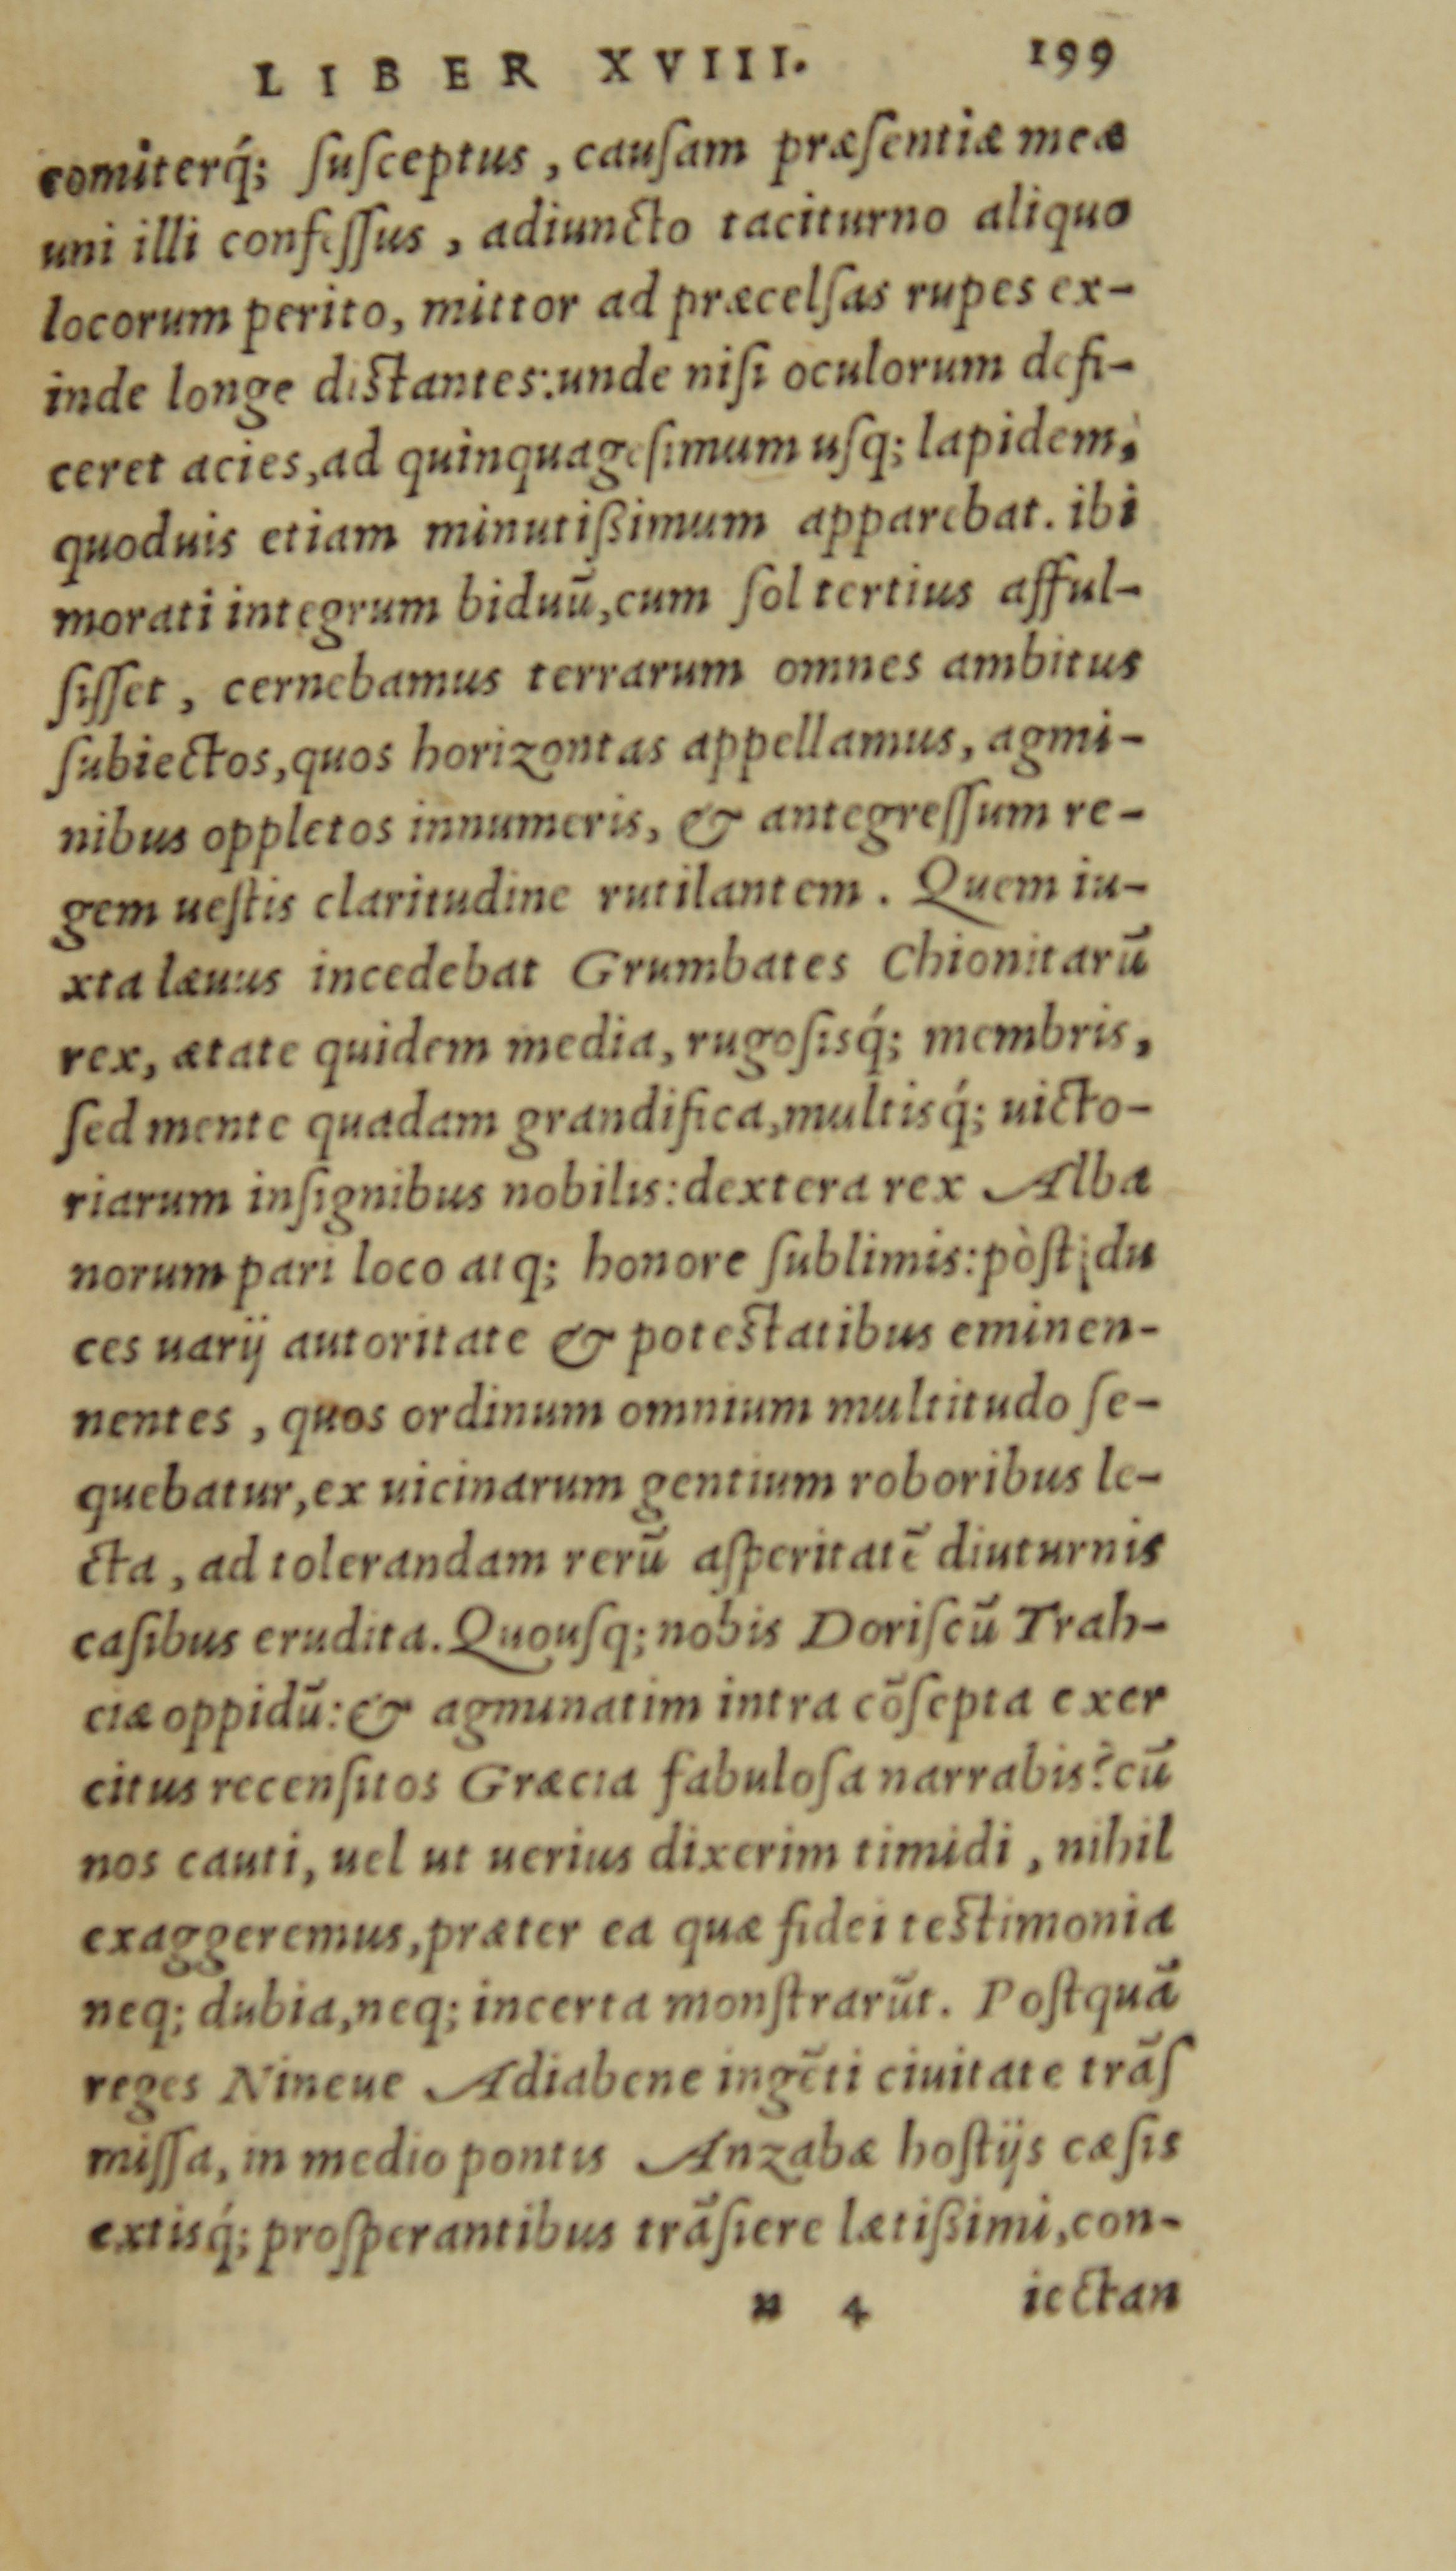 LIBER XVIII. 199
comiterq́; ſuſceptus, cauſam præſentiæ meæ
uni illi confeſſus, adiuncto taciturno aliquo
locorum perito, mittor ad præcelſas rupes ex-
inde longe distantes: unde niſi oculorum defi-
ceret acies, ad quinquageſimum uſq; lapidem,
quoduis etiam minutißimum apparebat. ibi
morati integrum biduū, cum ſol tertius afful-
ſiſſet, cernebamus terrarum omnes ambitus
ſubiectos, quos horizontas appellamus, agmi-
nibus oppletos innumeris, & antegreſſum re-
gem ueſtis claritudine rutilantem. Quem iu-
xta læuus incedebat Grumbates Chionitarū
rex, ætate quidem media, rugoſisq́; membris,
ſed mente quadam grandifica, multisq́; uicto-
riarum inſignibus nobilis: dextera rex Alba
norum pari loco atq; honore ſublimis: pòſt; du
ces uarij autoritate & potestatibus eminen-
nentes, quos ordinum omnium multitudo ſe-
quebatur, ex uicinarum gentium roboribus le-
cta, ad tolerandam rerū aſperitatē diuturnis
caſibus erudita. Quouſq; nobis Doriſcū Trah-
ciæ oppidū: & agminatim intra cōſepta exer
citus recenſitos Græcia fabuloſa narrabis? cū
nos cauti, uel ut uerius dixerim timidi, nihil
exaggeremus, præter ea quæ fidei testimonia
neq; dubia, neq; incerta monſtrarūt. Poſtquā
reges Nineue Adiabene ingēti ciuitate trāſ
miſſa, in medio pontis Anzabæ hoſtijs cæſis
extisq́; proſperantibus trāſiere lætißimi, con-
n 4 iectan